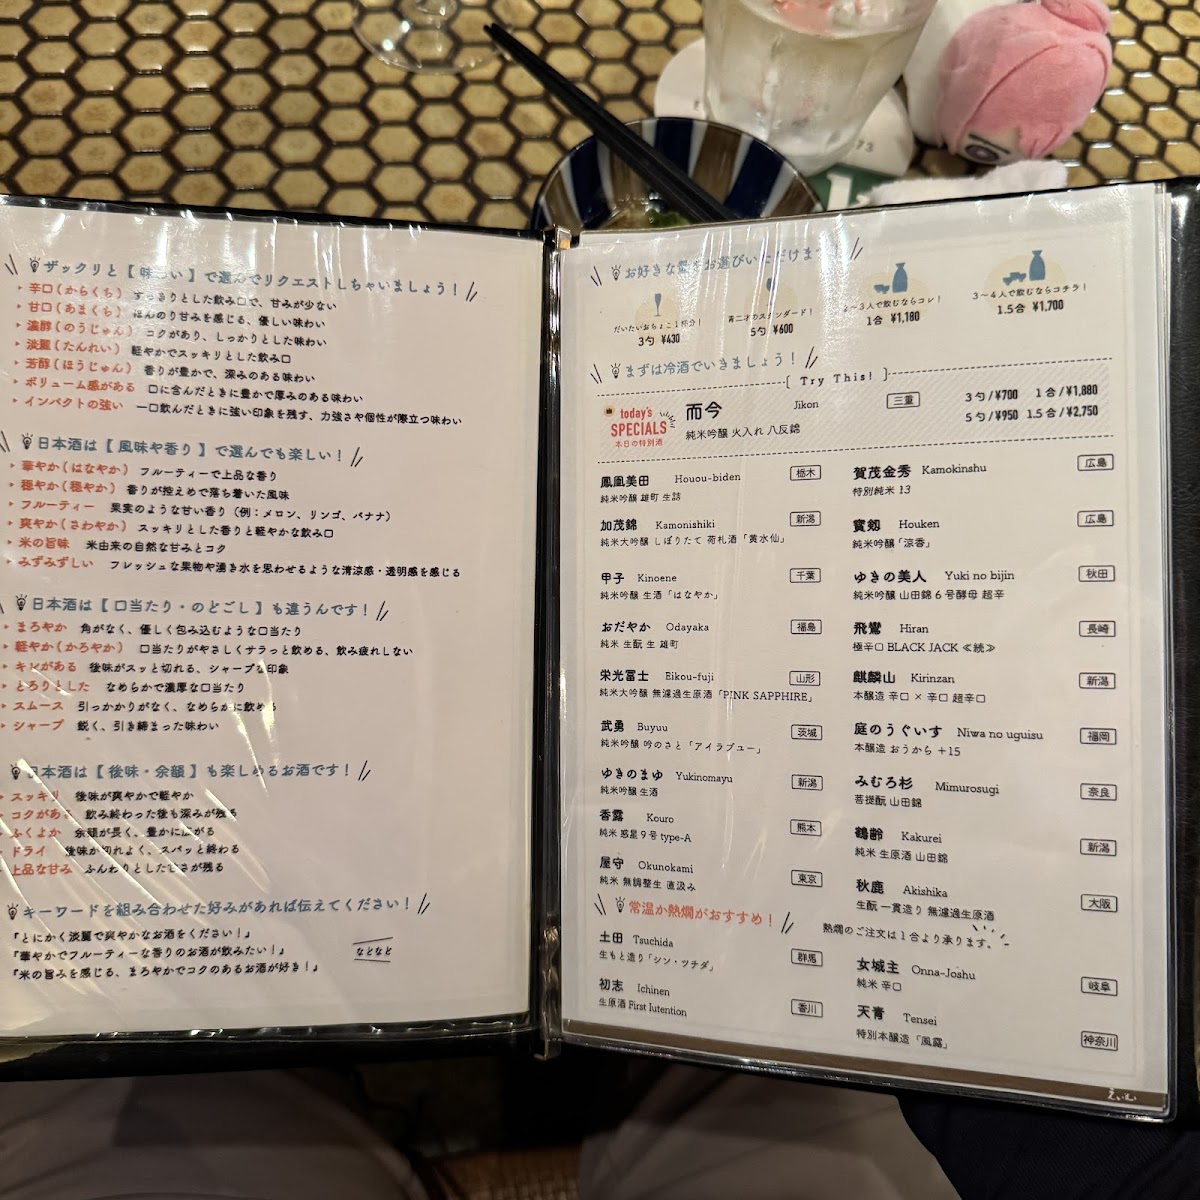 ザックリと【味わい】で選んでリクエストしちゃいましょう！
辛口（からくち） すっきりとした飲み口で、甘みが少ない
甘口（あまくち） ほんのり甘みを感じる、優しい味わい
濃醇（のうじゅん） コクがあり、しっかりとした味わい
淡麗（たんれい） 軽やかでスッキリとした飲み口
芳醇（ほうじゅん） 香りが豊かで、深みのある味わい
ボリューム感がある 口に含んだときに豊かで厚みのある味わい
インパクトの強い 一口飲んだときに強い印象を残す、力強さや個性が際立つ味わい
日本酒は【風味や香り】で選んでも楽しい！
華やか（はなやか） フルーティーで上品な香り
穏やか（穏やか） 香りが控えめで落ち着いた風味
フルーティー 果実のような甘い香り（例：メロン、リンゴ、バナナ）
爽やか（さわやか） スッキリとした香りと軽やかな飲み口
米の旨味 米由来の自然な甘みとコク
みずみずしい フレッシュな果物や湧き水を思わせるような清涼感・透明感を感じる
日本酒は【口当たり・のどごし】も違うんです！
まろやか 角がなく、優しく包み込むような口当たり
軽やか（かろやか） 口当たりがやさしくサラっと飲める、飲み疲れしない
キレがある 後味がスッと切れる、シャープな印象
とろりとした なめらかで濃厚な口当たり
スムース 引っかかりがなく、なめらかに飲める
シャープ 鋭く、引き締まった味わい
日本酒は【後味・余韻】も楽しめるお酒です！
スッキリ 後味が爽やかで軽やか
コクがある 飲み終わった後も深みが残る
ふくよか 余韻が長く、豊かに広がる
ドライ 後味が切れよく、スパッと終わる
上品な甘み ふんわりとした甘さが残る
キーワードを組み合わせた好みがあれば伝えてください！
『とにかく淡麗で爽やかなお酒をください！』
『華やかでフルーティーな香りのお酒が飲みたい！』
『米の旨みを感じる、まろやかでコクのあるお酒が好き！』
などなど
お好きな量をお選びいただけます
だいたいおちょこ1杯分！
3勺 ¥430
青二才のスタンダード！
5勺 ¥600
2〜3人で飲むならコレ！
1合 ¥1,180
3〜4人で飲むならコチラ！
1.5合 ¥1,700
まずは冷酒でいきましょう！
[ Try This! ]
today's SPECIALS
本日の特別酒
而今 Jikon 三重
純米吟醸 火入れ 八反錦
3勺/¥700 1合/¥1,880
5勺/¥950 1.5合/¥2,750
鳳凰美田 Houou-biden 栃木
純米吟醸 雄町 生詰
加茂錦 Kamonishiki 新潟
純米大吟醸 しぼりたて 荷札酒「黄水仙」
甲子 Kinoene 千葉
純米吟醸 生酒「はなやか」
おだやか Odayaka 福島
純米 生酛 生 雄町
栄光冨士 Eikou-fuji 山形
純米大吟醸 無濾過生原酒「PINK SAPPHIRE」
武勇 Buyuu 茨城
純米吟醸 吟のさと「アイラブユー」
ゆきのまゆ Yukinomayu 新潟
純米吟醸 生酒
香露 Kouro 熊本
純米 惑星9号 type-A
屋守 Okunokami 東京
純米 無調整生 直汲み
賀茂金秀 Kamokinshu 広島
特別純米 13
寳剱 Houken 広島
純米吟醸「涼香」
ゆきの美人 Yuki no bijin 秋田
純米吟醸 山田錦 6号酵母 超辛
飛鸞 Hiran 長崎
極辛口 BLACK JACK ≪続≫
麒麟山 Kirinzan 新潟
本醸造 辛口 × 辛口 超辛口
庭のうぐいす Niwa no uguisu 福岡
本醸造 おうから +15
みむろ杉 Mimurosugi 奈良
菩提酛 山田錦
鶴齢 Kakurei 新潟
純米 生原酒 山田錦
秋鹿 Akishika 大阪
生酛 一貫造り 無濾過生原酒
常温か熱燗がおすすめ！
熱燗のご注文は1合より承ります。
土田 Tsuchida 群馬
生もと造り「シン・ツチダ」
初志 Ichinen 香川
生原酒 First Iutention
女城主 Onna-Joshu 岐阜
純米 辛口
天青 Tensei 神奈川
特別本醸造「風露」